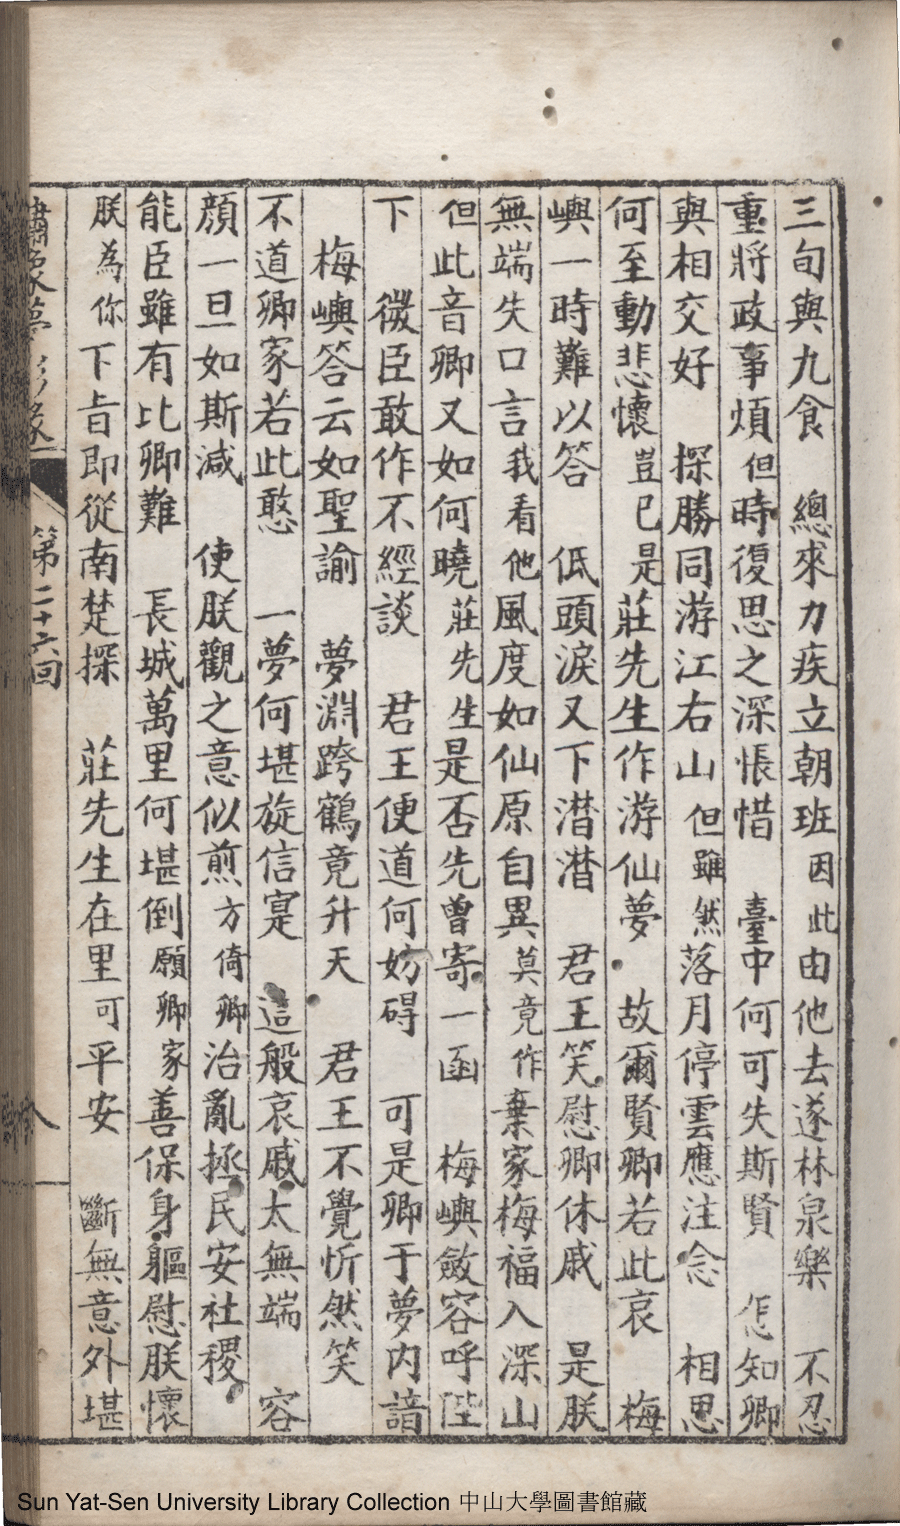 三旬與九食　總來力疾立朝班因此由他去遂林泉樂　不忍
重將政事煩但時復思之深悵惜　臺中何可失斯賢　怎知卿
與相交好　探勝同游江右山但雖然落月停雲應注念　相思
何至動悲懷豈已是莊先生作游仙夢　故爾賢卿若此哀　梅
嶼一時難以答　低頭淚又下潜潜　君王笑慰卿休戚　是朕
無端失口言我看他風度如仙原自異莫竟作棄家梅福入深山
但此音卿又如何曉莊先生是否先曾寄一函　梅嶼斂容呼陛
下　微臣敢作不經談　君王便道何妨碍　可是卿于夢內諳
梅嶼答云如聖諭　夢淵跨鶴竟升天　君王不覺忻然笑
不道卿家若此憨　一夢何堪旋信寔　這般哀戚太無端　容
顔一旦如斯减　使朕觀之意似煎方倚卿治亂拯民安社稷
能臣雖有比卿難　長城萬里何堪倒願卿家善保身軀慰朕懷
朕為你下旨即從南楚探　莊先生在里可平安　斷無意外堪
第二十六回
八
Sun Yat-Sen University Library Collection 中山大學圖書館藏